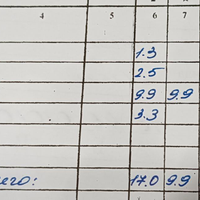 4 5 6 7
1.3
2.5
9.9 9.9
3.3
его: 17.0 9.9